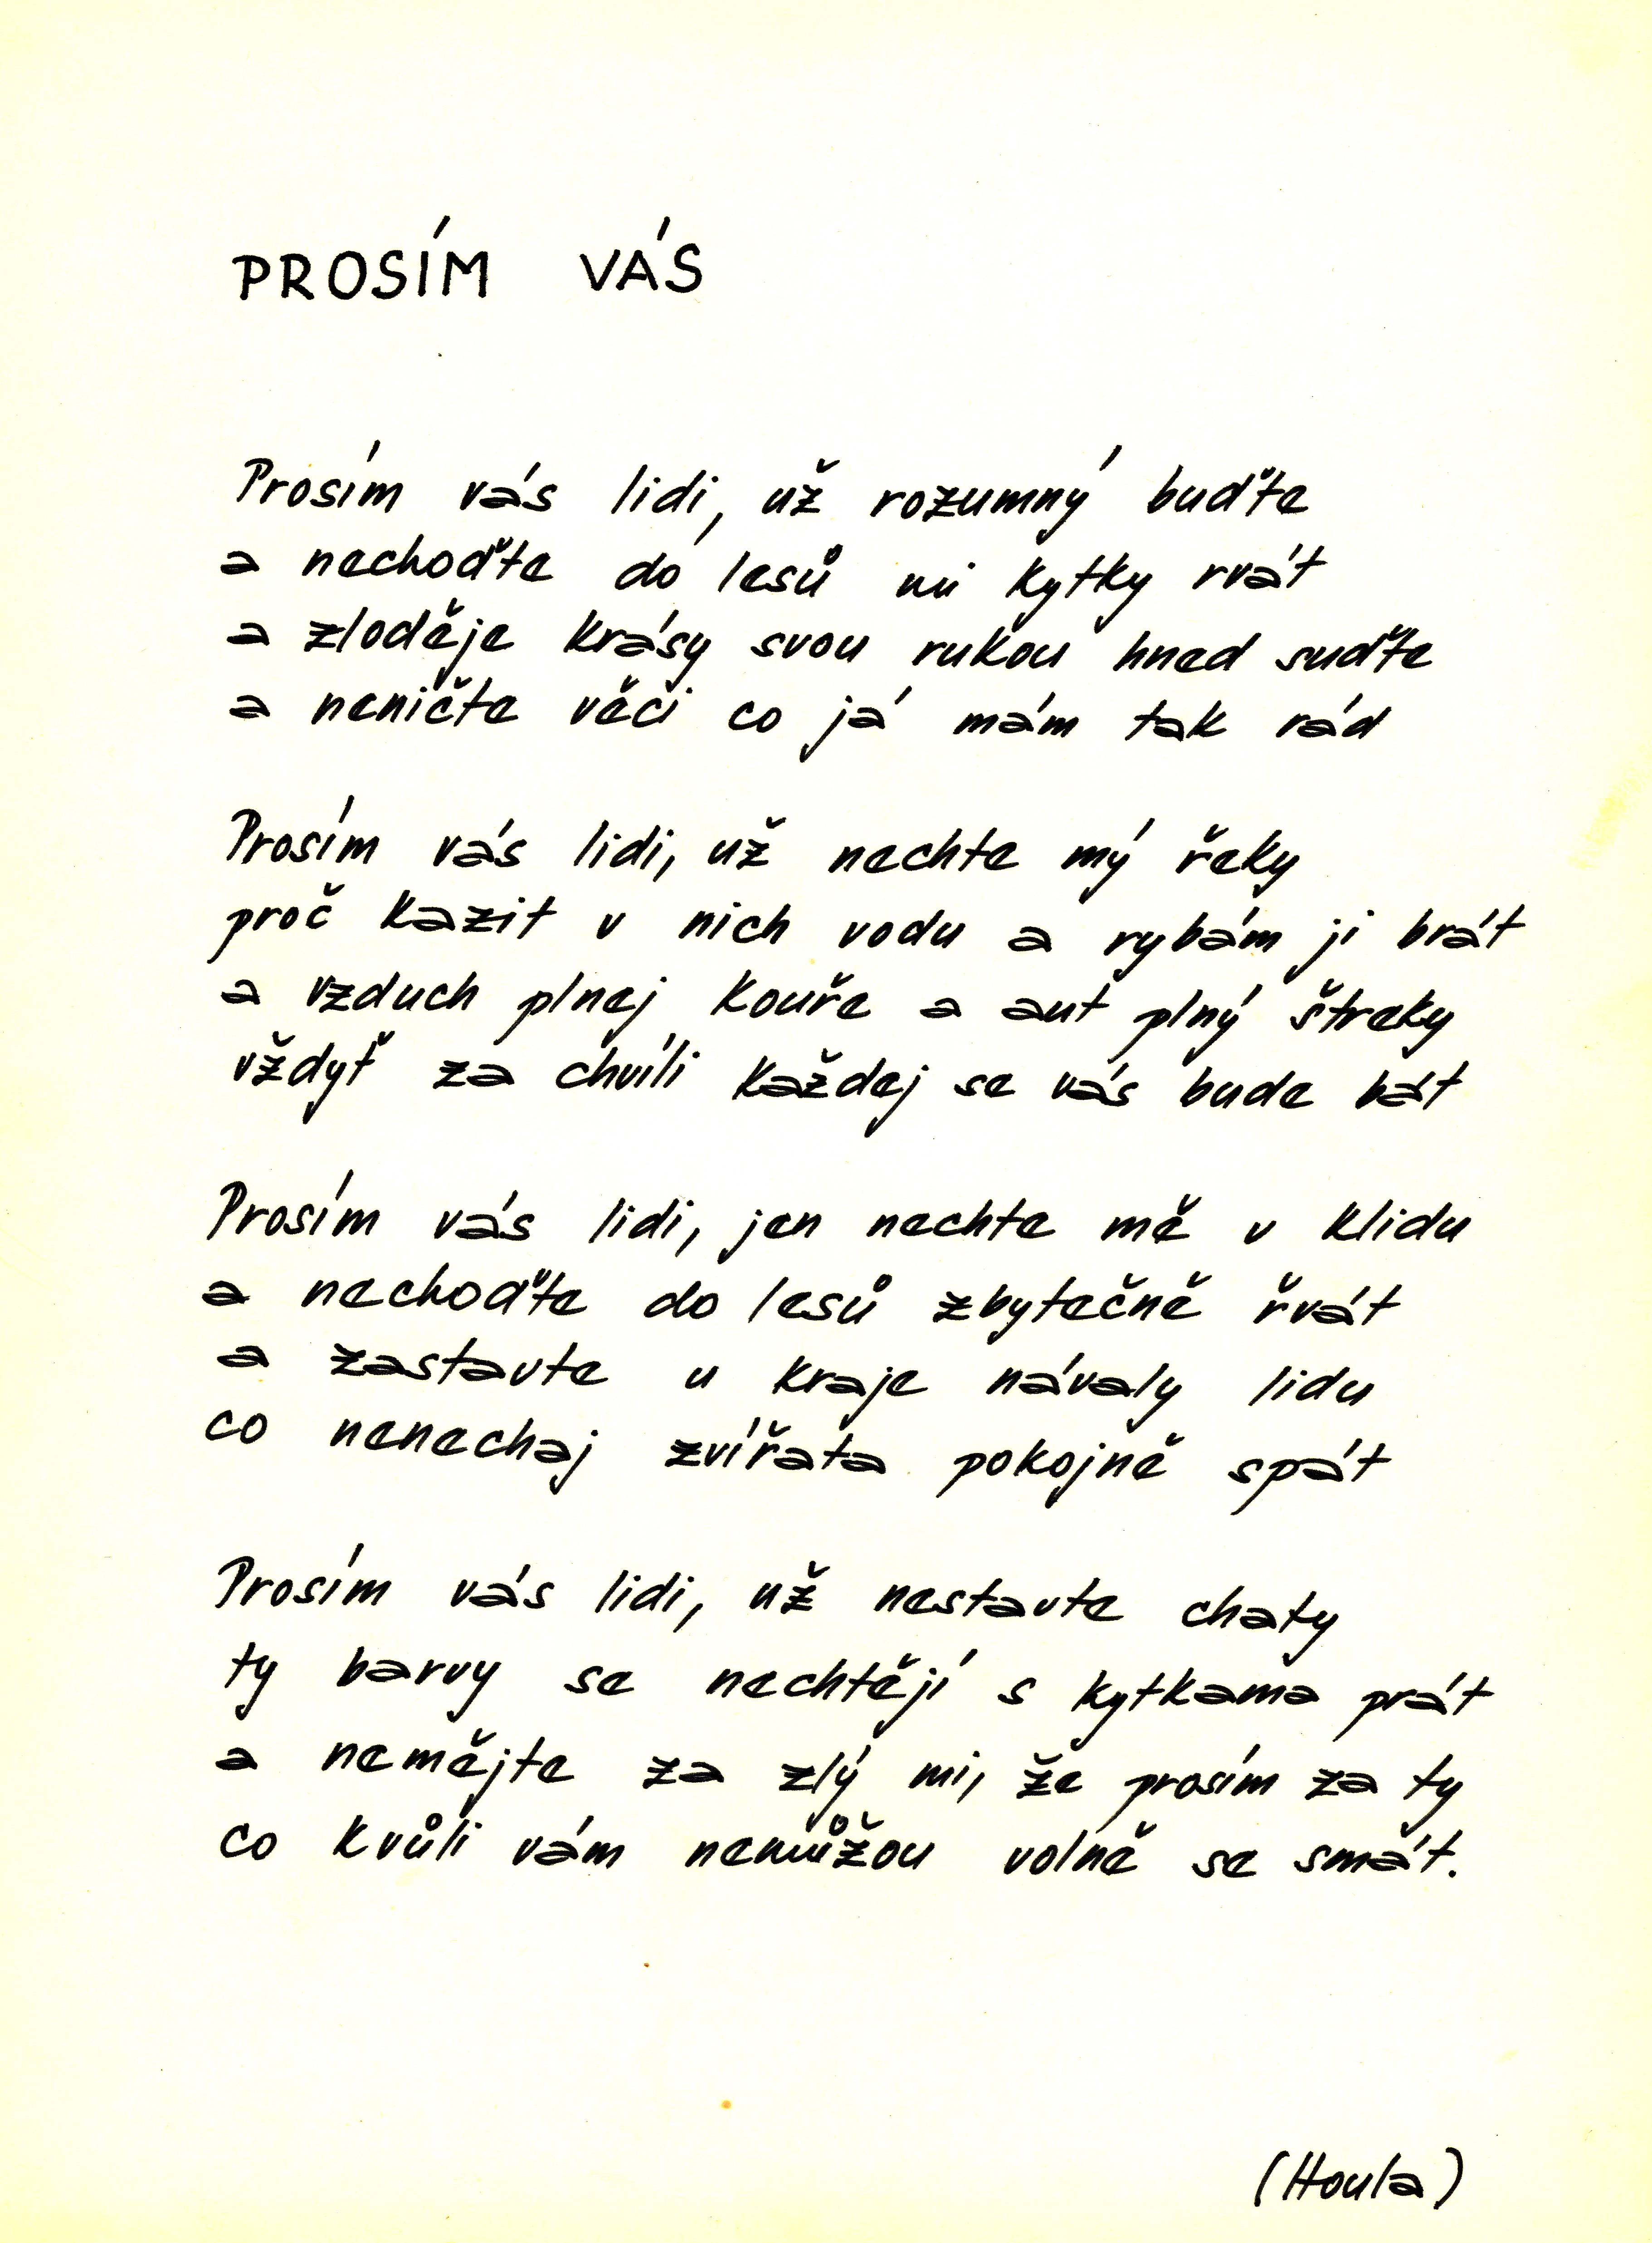 PROSÍM VÁS
Prosím vás lidi, už rozumný buďte
a nechoďte do lesů mi kytky rvát
a zloděje krásy svou rukou hned suďte
a neničte věci co já mám tak rád
Prosím vás lidi, už nechte mý řeky
proč kazit v nich vodu a rybám ji brát
a vzduch plnej kouře a aut plný štreky
vždyť za chvíli každej se vás bude bát
Prosím vás lidi, jen nechte mě v klidu
a nechoďte do lesů zbytečně řvát
a zastavte u kraje návaly lidu
co nenechaj zvířata pokojně spát
Prosím vás lidi, už nestavte chaty
ty barvy se nechtějí s kytkama prát
a nemějte za zlý mi, že prosím za ty
co kvůli vám nemůžou volně se smát.
(Houla)